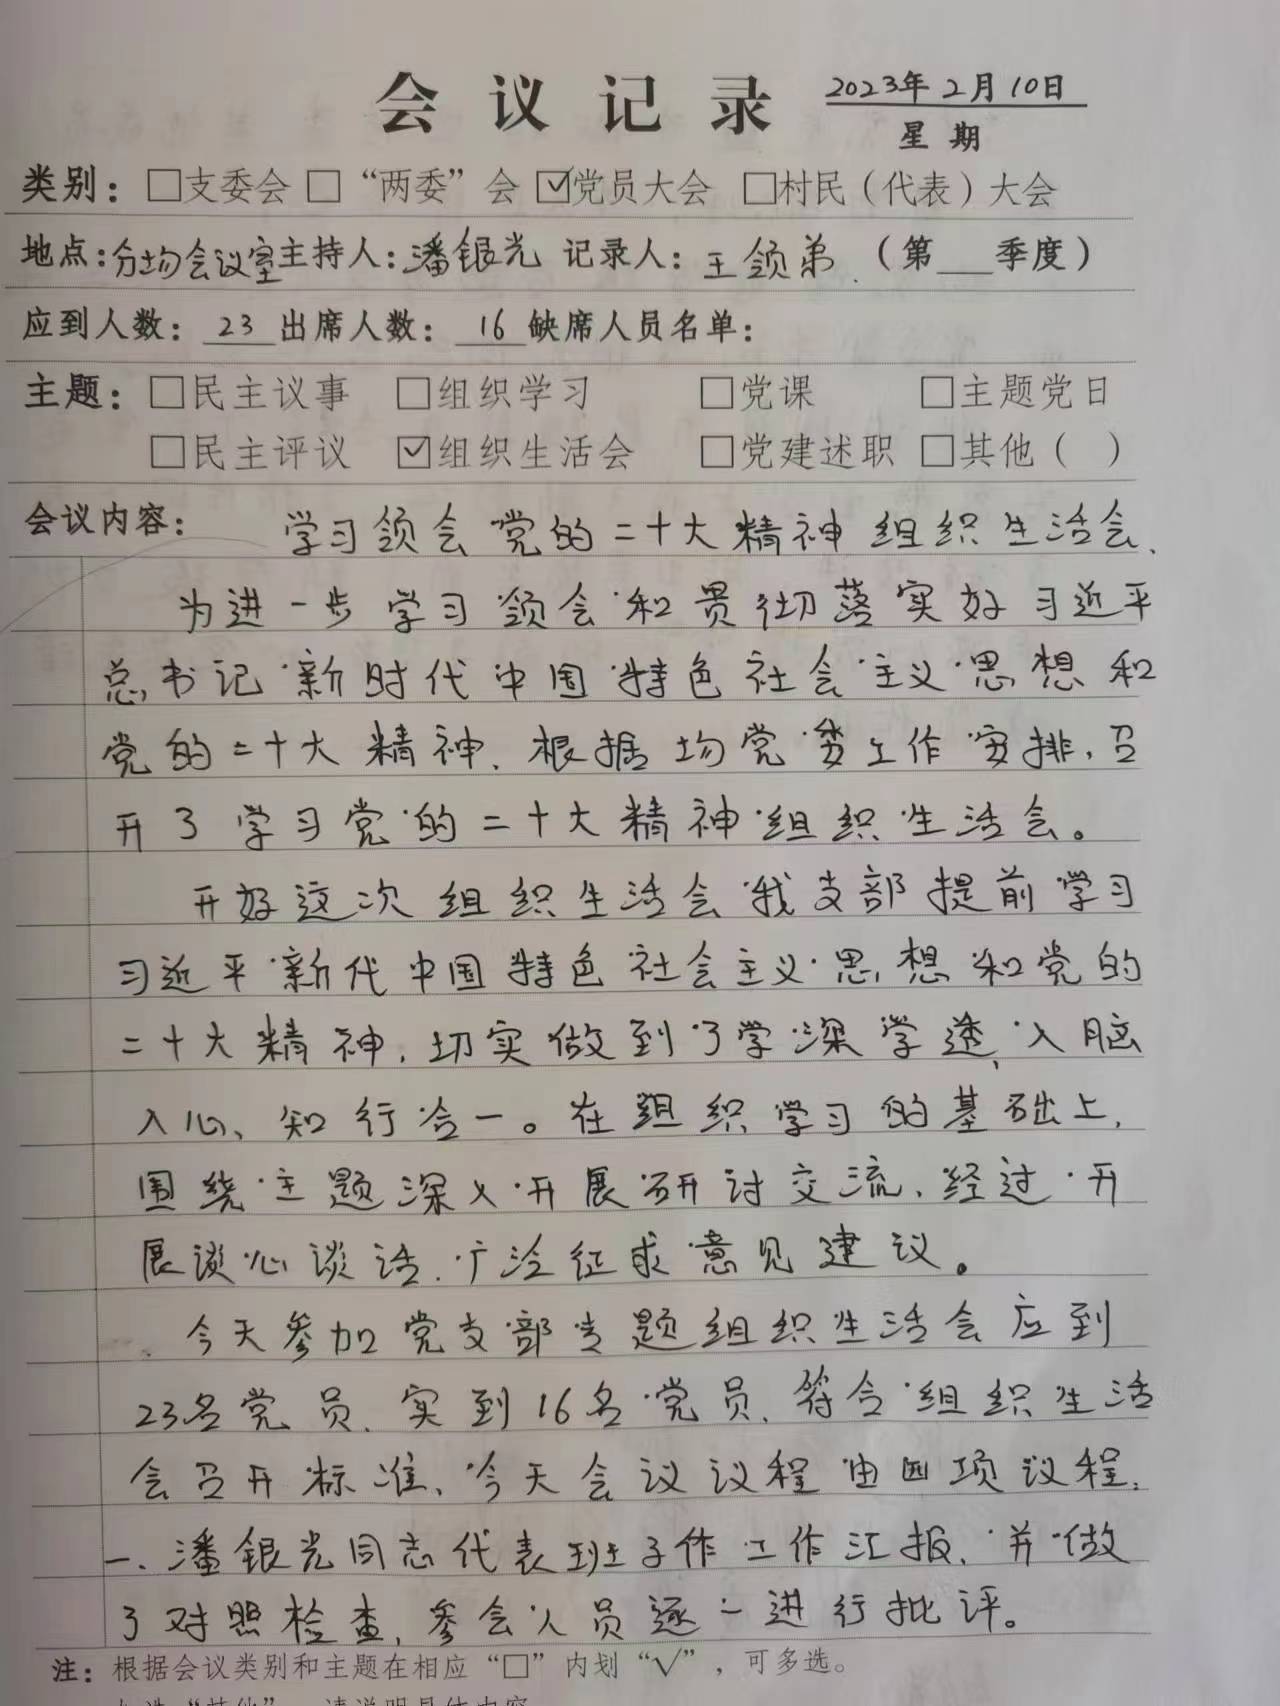 会议记录 2023年2月10日
星期
类别：□支委会 □“两委”会 ☑党员大会 □村民（代表）大会
地点：分场会议室 主持人：潘银光 记录人：王领弟（第___季度）
应到人数：23 出席人数：16 缺席人员名单：
主题：□民主议事 □组织学习 □党课 □主题党日
□民主评议 ☑组织生活会 □党建述职 □其他（ ）
会议内容：学习领会党的二十大精神组织生活会、
为进一步学习领会和贯彻落实好习近平
总书记新时代中国特色社会主义思想和
党的二十大精神、根据场党委工作安排，召
开了学习党的二十大精神组织生活会。
开好这次组织生活会我支部提前学习
习近平新代中国特色社会主义思想和党的
二十大精神，切实做到了学深学透、入脑
入心、知行合一。在组织学习的基础上，
围绕主题深入开展研讨交流、经过开
展谈心谈话、广泛征求意见建议。
今天参加党支部专题组织生活会应到
23名党员、实到16名党员、符合组织生活
会召开标准、今天会议议程由四项议程，
一、潘银光同志代表班子作工作汇报、并做
了对照检查，参会人员逐一进行批评。
注：根据会议类别和主题在相应“□”内划“√”，可多选。